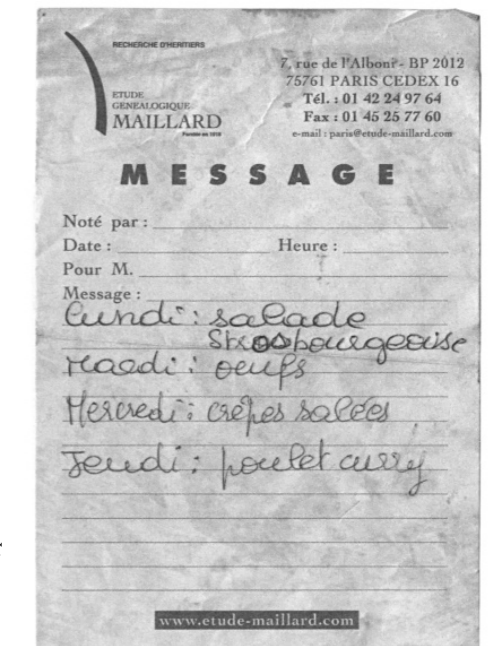 RECHERCHE D'HERITIERS
ETUDE
GENEALOGIQUE
MAILLARD
Fondée en 1919
7, rue de l'Alboni - BP 2012
75761 PARIS CEDEX 16
Tél. : 01 42 24 97 64
Fax : 01 45 25 77 60
e-mail : paris@etude-maillard.com
MESSAGE
Noté par :
Date : Heure :
Pour M.
Message :
Lundi : salade
Strasbourgeoise
Mardi : oeufs
Mercredi : crêpes salées
Jeudi : poulet curry
www.etude-maillard.com